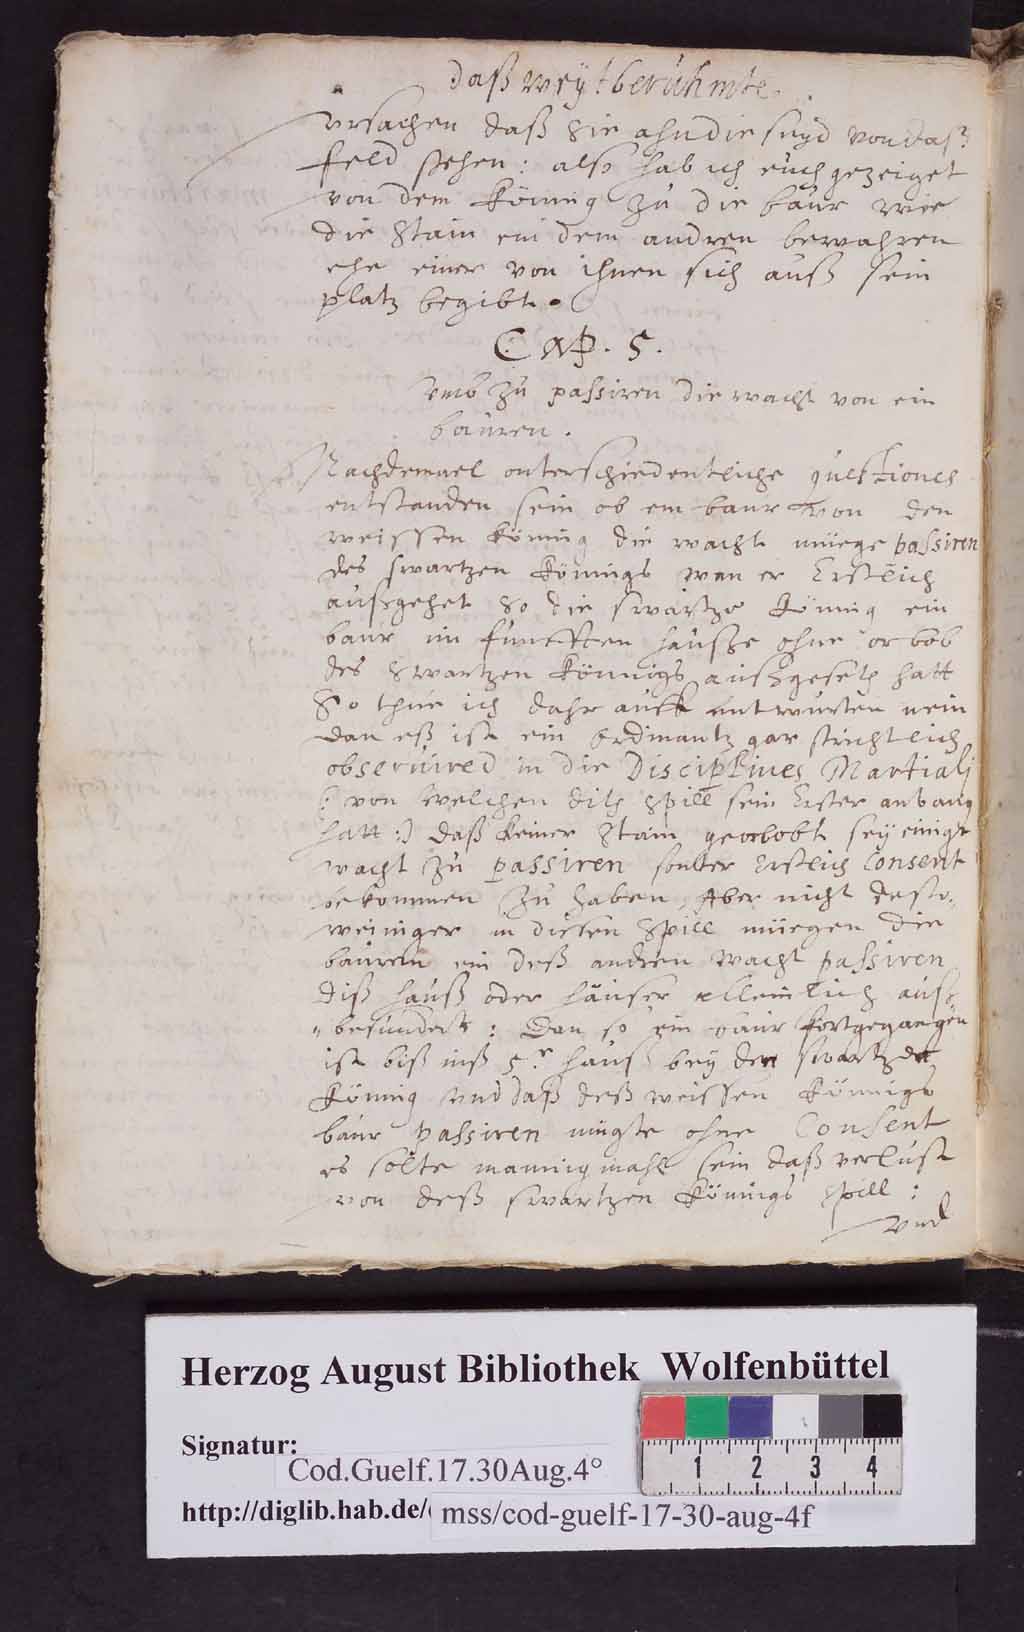 daß weÿtberühmte.
vrsachen daß Sie ahn die seyd von daß
feld stehen: alß hab ich euch gezeiget
von dem König zu die baur wie
die Stain ein dem andren bewahren
ehe einer von ihnen sich auß sein
platz begibt.
CAP. 5.
Umb zu passiren die wacht von ein
bauren.
Nachdemael onterschiedentliche questiones
entstanden sein ob ein baur von den
weissen König die wacht müege passiren
des swartzen Königs wan er Erstlich
außgehet So die swartze König ein
baur im funfften hauße ohne
des Swartzen Königs außgesetz hatt
So thue ich dahr auff antwurten nein
dan eß ist ein ordinantz gar strichtlich
observired in die Disciplines Martialj
(: von welchen ditz Spill sein Erster anvang
hatt :) daß keiner Stain georlobt seÿ einige
wacht zu passiren sonder Erstlich Consent
bekommen zu haben, Aber nicht desto,
weiniger in diesen Spill müegen die
bauren ein deß andren wacht passiren
diß hauß oder häuser alleinlich auß
"besundert: Dan so ein baur fortgegangen
ist biß inß 5.r hauß beÿ der swartzen
König und daß deß weissen Königs
baur passiren mugte ohne Consent
es solte mannigmahl sein daß verlust
von deß swartzen Königs Spill:
und
Herzog August Bibliothek Wolfenbüttel
Signatur:
Cod.Guelf.17.30Aug.4°
http://diglib.hab.de/ mss/cod-guelf-17-30-aug-4f
1 2 3 4